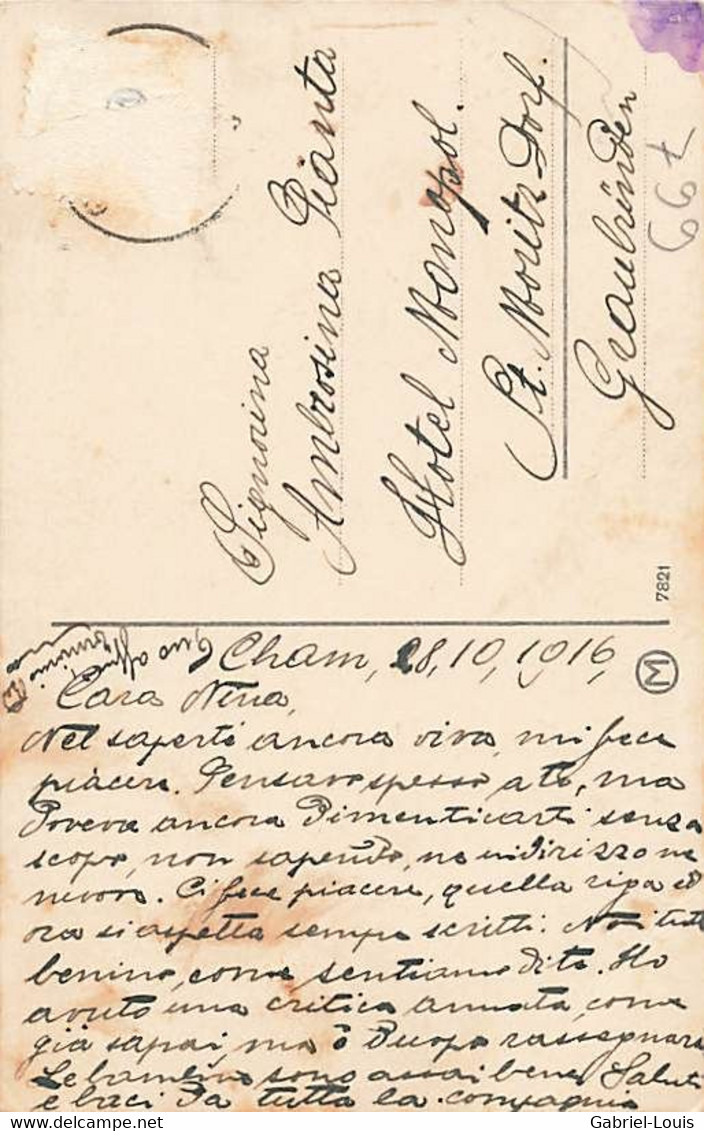 Signorina
Ambrosina Pianta
Hotel Monopol.
St. Moritz Dorf.
Graubünden
66t
7821
M
Cham, 28,10,1916,
Cara Nina,
Nel saperti ancora viva, mi fece
piacere. Pensavo spesso a te, ma
doveva ancora dimenticarti senza
scopo, non sapendo, ne indirizzo ne
nuova. Ci fece piacere, quella riga ed
ora si aspetta sempre scritti. Noi tutti
benino, come sentiamo di te. Ho
avuto una critica annata, come
già sapai, ma è duopo rassegnare
Le bambine sono assai bene, Saluti
e baci da tutta la compagnia
Gabriel-Louis